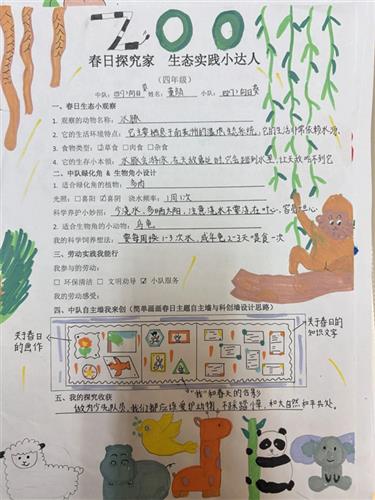 ZOO
春日探究家 生态实践小达人
(四年级)
中队: 四(7)向日葵 姓名: 小队: 四(7)向日葵
一、春日生态小观察
1. 观察的动物名称: 水豚
2. 它的生活环境特点: 它主要栖息于南美洲的湿地生态系统,它的生活非常依赖水源
3. 食物类型: ☑草食 □肉食 □杂食
4. 它的生存小本领: 水豚会游泳,在天敌靠近时它会躲到水里,让天敌吃不到它
二、中队绿化角 & 生物角小设计
1. 适合绿化角的植物: 多肉
光照: □喜阳 ☑喜阴 浇水频率: 1周1次
科学养护小妙招: 少浇水,多晒太阳,注意浇水不要浇在叶心,容易烂心
2. 适合生物角的小动物: 乌龟
我的科学饲养想法: 要每周换1-3次水,成年龟2-3天喂食一次
三、劳动实践我能行
我参与的劳动:
□ 环保清洁 □ 文明劝导 ☑ 小队服务
我的劳动感受:
四、中队自主墙我来创(简单画画春日主题自主墙与科创墙设计思路)
关于春日的画作
关于春日的知识文字
"我"和春天的合影
五、我的探究收获
做为少先队员,我们都应该爱护动物,不踩踏小草,和大自然和平共处。